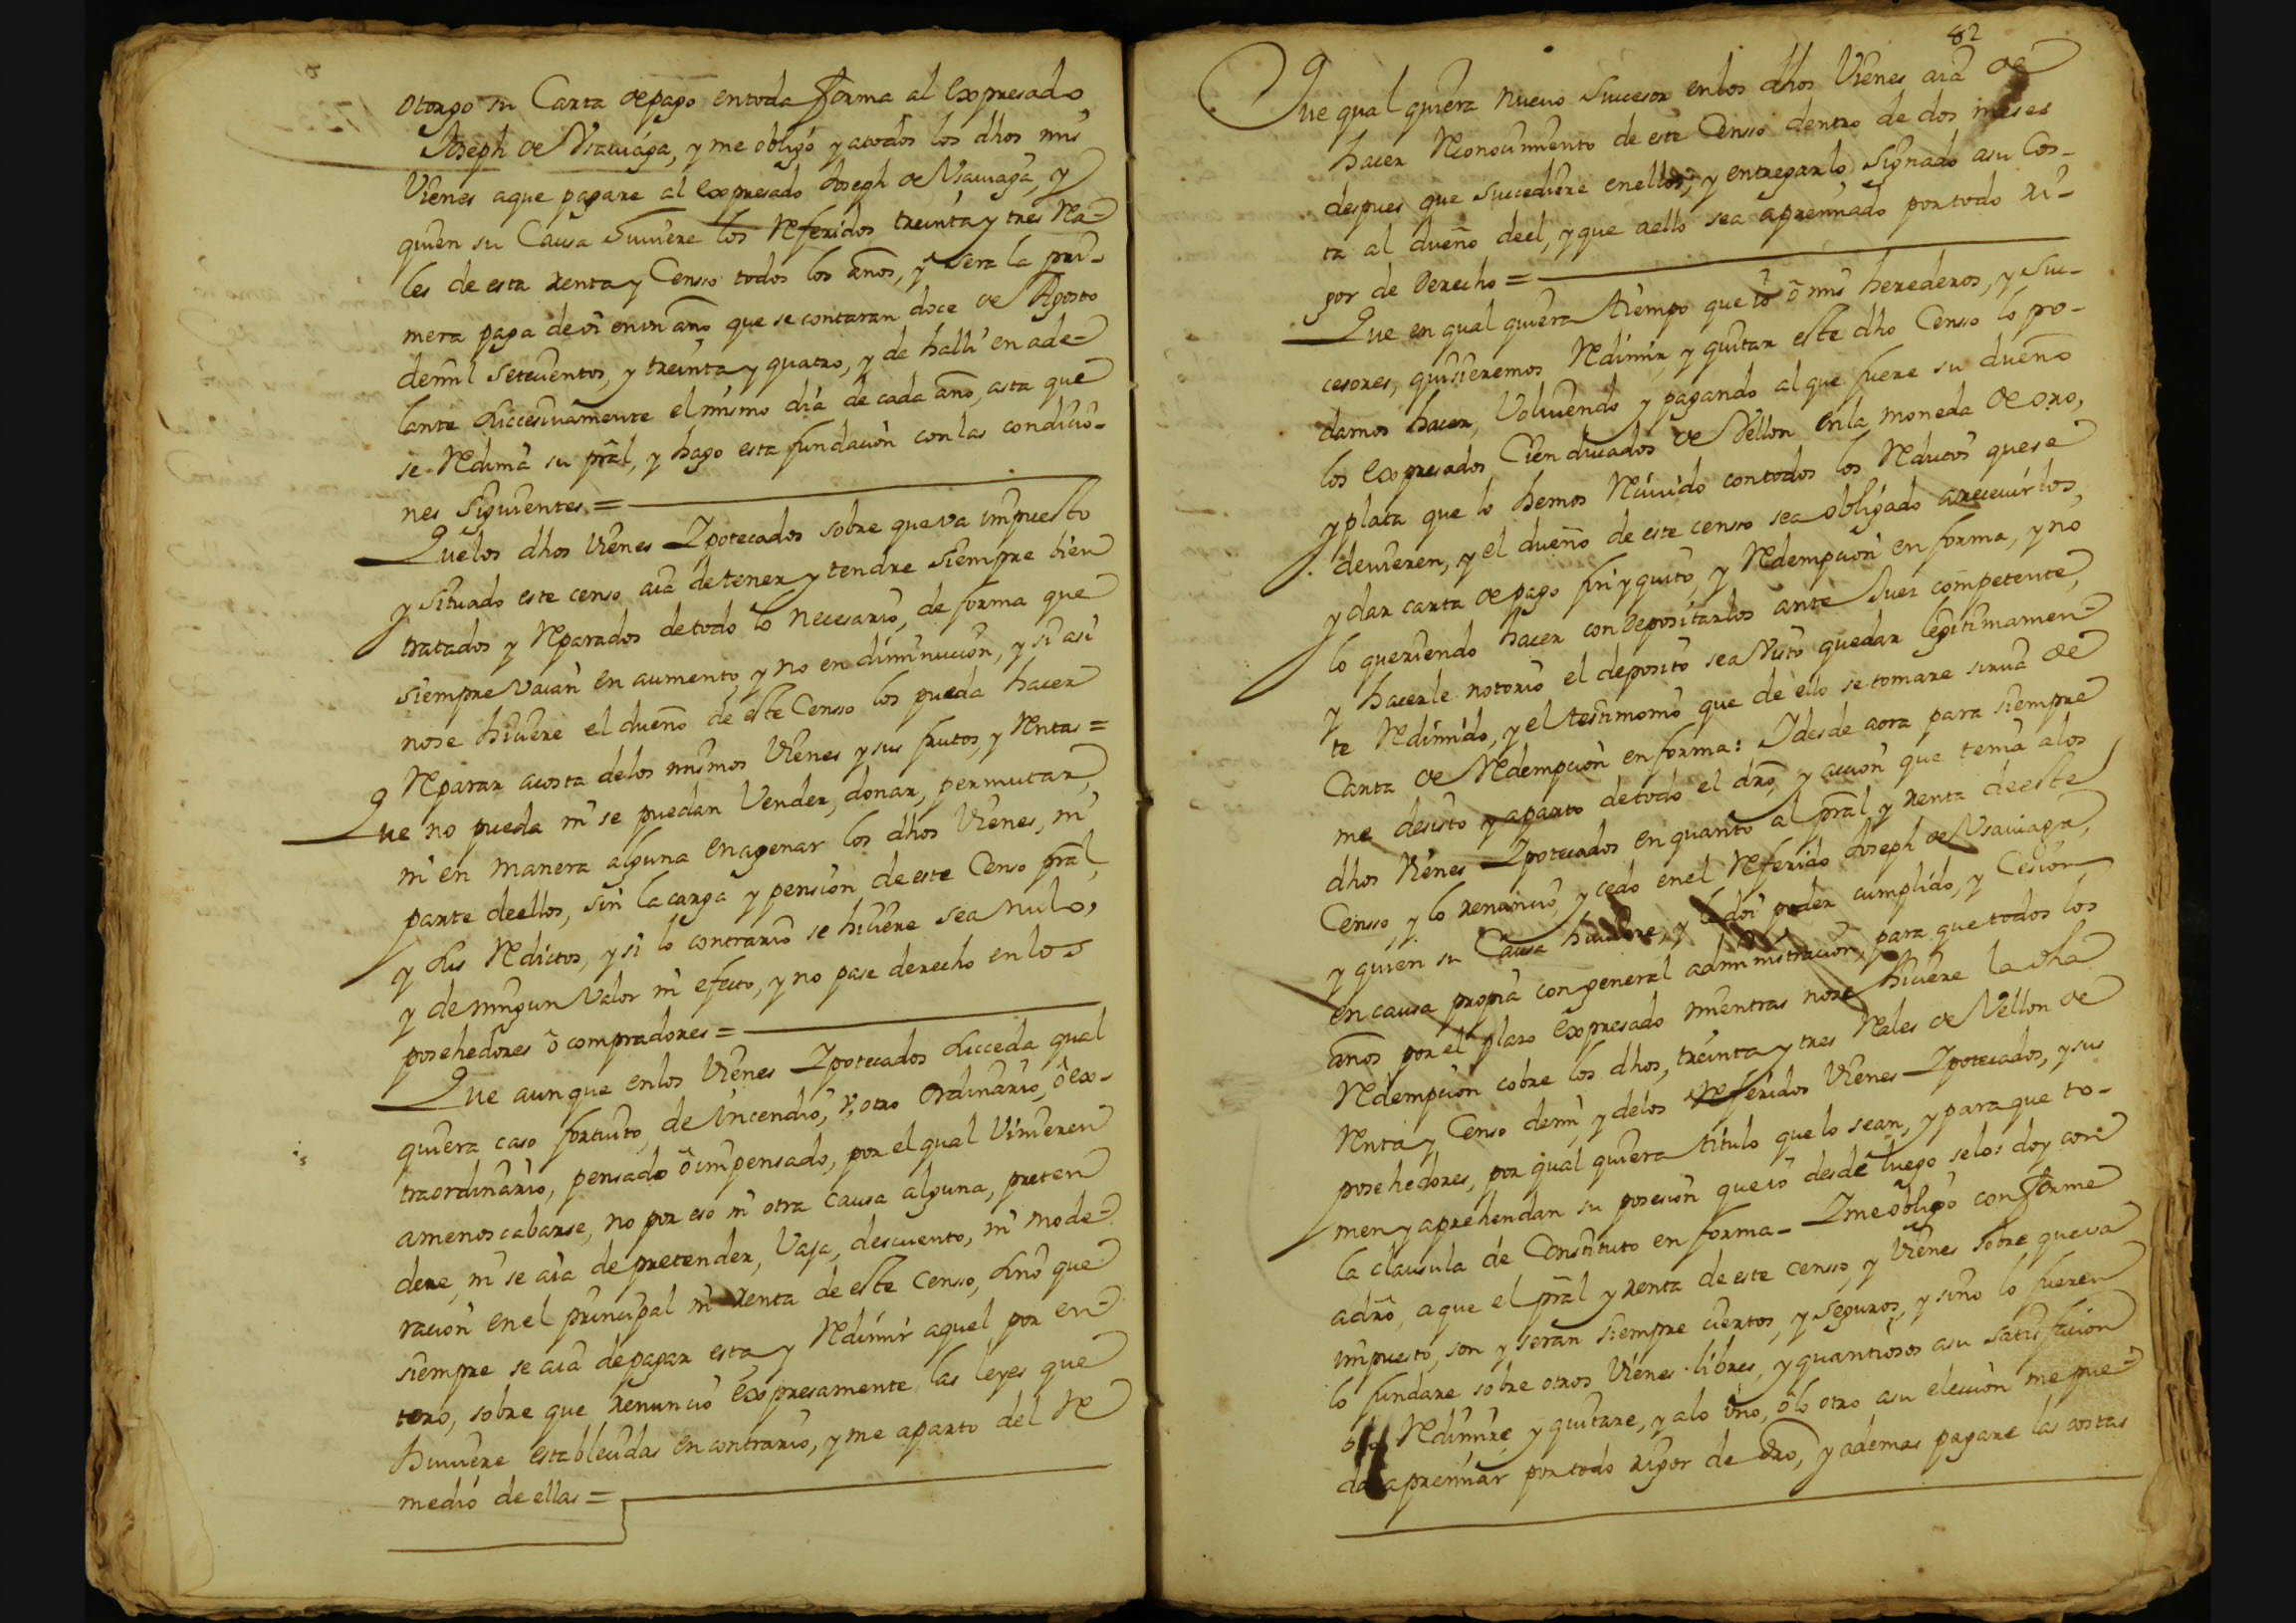 otorgo su Carta de pago en toda forma al Expresado
Joseph de Vsauiaga, y me obligo y a todos los dhos mis
Vienes a que pagare al expresado Joseph de Vsauiaga, y
quien su Causa huuiere los Referidos treinta y tres Rea-
les de esta renta y Censso todos los años, y sera la pri-
mera paga de oi en vn año que se contaran doce de Agosto
de mil setecientos, y treinta y quatro, y de halli en ade-
lante succesiuamente el mismo dia de cada año, asta que
se Redima su pral, y hago esta fundacion con las condicio-
nes siguientes =
Que los dhos Vienes Ypotecados sobre que va impuesto
y situado este censo aia de tener y tendre siempre bien
tratados y Reparados de todo lo necesario, de forma que
siempre vaian en aumento, y no en diminucion, y si asi
no se hiciere el dueño de este Censso los pueda hacer
Reparar a costa de los mismos Vienes y sus frutos, y Rentas =
Que no pueda ni se puedan Vender, donar, permutar,
ni en manera alguna enagenar los dhos Vienes, ni
parte de ellos, sin la carga y pension de este Censo pral,
y sus Reditos, y si lo contrario se hiciere sea nulo,
y de ningun valor ni efecto, y no pase derecho en los
posehedores ô compradores =
Que aunque en los Vienes Ypotecados succeda qual
quiera caso fortuito, de incendio, v, otro ordinario, ô ex-
traordinario, pensado ô impensado, por el qual vinieren
a menoscabarse, no por eso ni otra causa alguna, preten
dere, ni se aia de pretender, Vaja, descuento, ni mode-
racion en el principal ni renta de este Censso, sino que
siempre se aia de pagar esta, y Redimir aquel por en-
tero, sobre que renuncio Expresamente las leyes que
huuiere establecidas en contrario, y me aparto del Re
medio de ellas =
82
Que qual quiera nueuo succesor en los dhos Vienes aia de
hacer Reconocimiento de este Censso dentro de dos meses
despues que succediere en ellos, y entregarlo signado a su Cos-
ta al dueño de el, y que a ello sea apremiado por todo ri-
gor de Derecho =
Que en qual quiera tiempo que io ô mis herederos, y suc-
cesores, quisieremos Redimir, y quitar este dho Censso lo po-
damos hacer, Voluiendo y pagando al que fuere su dueño
los Expresados Cien ducados de Vellon en la moneda de oro,
y plata que lo hemos Reciuido con todos los Reditos que se
deuieren, y el dueño de este censso sea obligado a receuirlos,
y dar carta de pago fin y quito, y Redempcion en forma, y no
lo queriendo hacer con Depositarlos ante Juez competente,
y hacerle notorio el deposito sea visto quedar legitimamen-
te Redimido, y el testimonio que de ello se tomare sirua de
Carta de Redempcion en forma: Y desde aora para siempre
me desisto y aparto de todo el dro, y accion que tenia a los
dhos Vienes Ypotecados en quanto al pral y renta de este
Censso, y lo renuncio, y cedo en el Referido Joseph de Vsauiaga,
y quien su Causa huuiere, y le doi poder cumplido, y Cesion
en causa propia con general administracion, para que todos los
años por el plazo Expresado mientras no se hiciere la dha
Redempcion cobre los dhos, treinta y tres Reales de Vellon de
Renta y Censo de mi, y de los Referidos Vienes Ypotecados, y sus
posehedores, por qual quiera titulo que lo sean, y para que to-
men y aprehendan su posesion que io desde luego se los doy con
la clausula de Constituto en forma - Y me obligo conforme
a dro, a que el pral y renta de este censso, y Vienes sobre que va
impuesto, son y seran siempre ciertos, y seguros, y si no lo fueren
lo fundare sobre otros Vienes libres, y quantiosos a su satisfacion
o lo Redimire y quitare, y a lo vno, ô lo otro a su eleccion me pue-
da apremiar por todo rigor de dro, y ademas pagare las costas